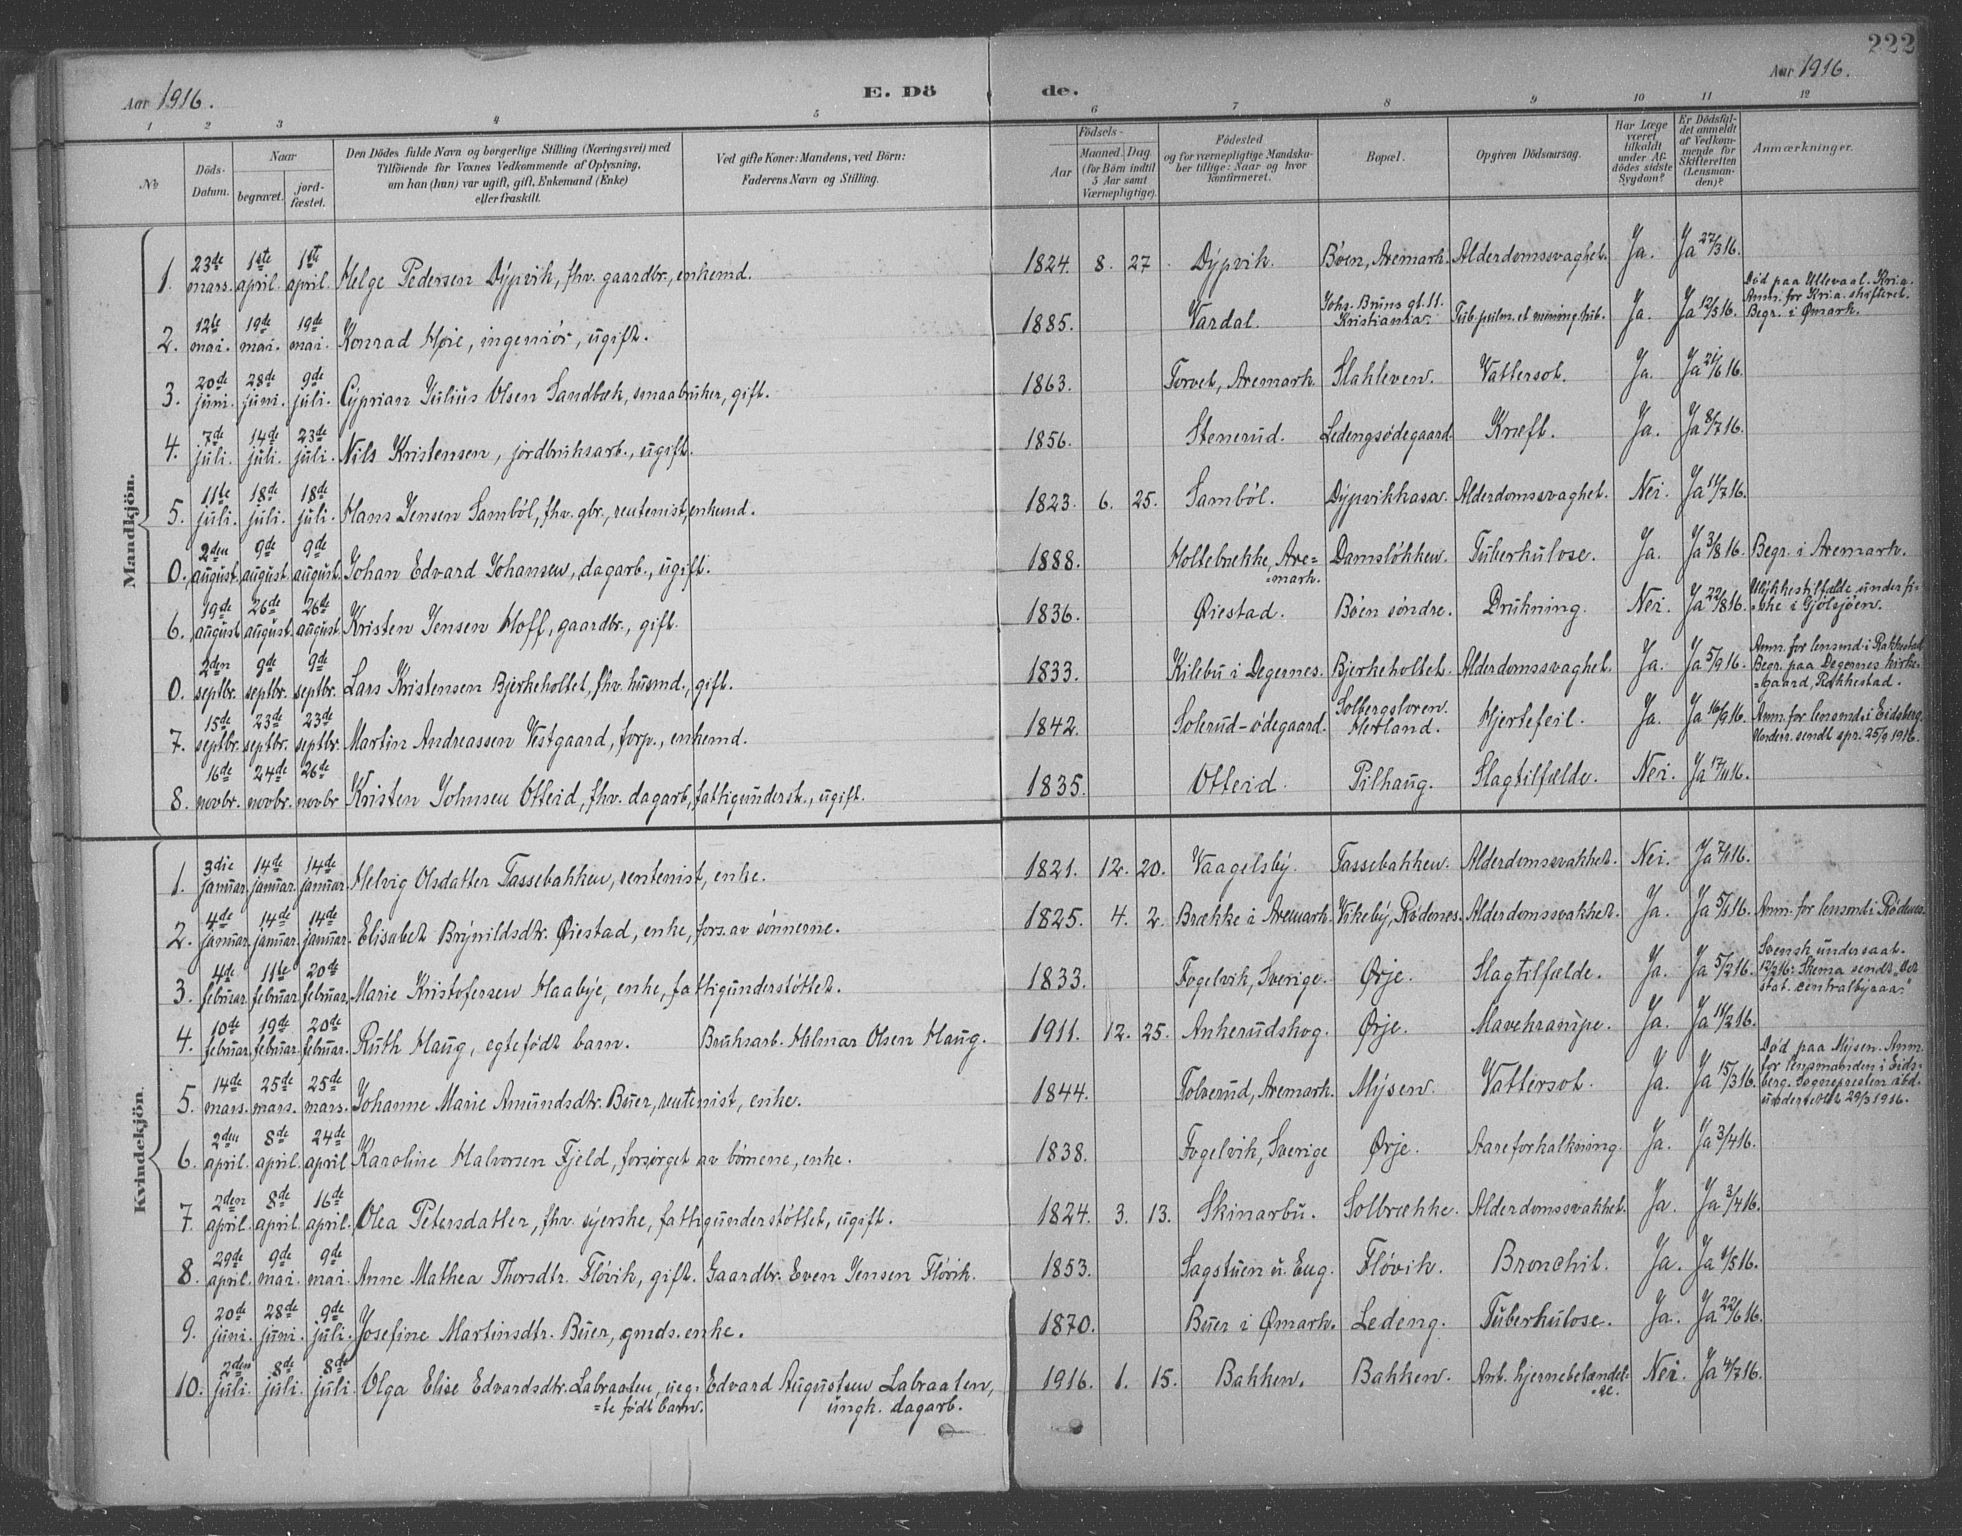 222
Aar 1916.
E. Dö de.
Aar 1916.
1 2 3 4 5 6 7 8 9 10 11 12
No
Döds-Datum.
Naar begravet. jordfæstet.
Den Dödes fulde Navn og borgerlige Stilling (Næringsvei) med Tilföiende for Voxnes Vedkommende af Oplysning, om han (hun) var ugift, gift, Enkemand (Enke) eller fraskilt.
Ved gifte Koner: Mandens, ved Börn: Faderens Navn og Stilling.
Födsels-
Aar Maaned. Dag. (for Börn indtil 5 Aar samt Værnepligtige)
Födested og for værnepligtige Mandskaber tillige: Naar og hvor konfirmeret.
Bopæl.
Opgiven Dödsaarsag.
Har Læge været tilkaldt under Afdödes sidste Sygdom?
Er Dödsfaldet anmeldt af Vedkommende for Skifteretten (Lensmanden)?
Anmærkninger.
Mandkjön.
1. 23de mars. 1ste april. 1ste april. Helge Pedersen Dypvik, fhv. gaardbr., enkemd. 1824. 8. 27. Dypvik. Bøen, Aremark. Alderdomssvaghet. Ja. Ja 27/3 16.
2. 12te mai. 19de mai. 19de mai. Konrad Høie, ingeniör, ugift. 1885. Vardal. Johs. Bruns gt. 11. Kristiania. Tub. pulm. et mining. tub. Ja. Ja 12/5 16. Død paa Ullevaal. Kria. Anm. for Kria. skifteret. Begr. i Ømark.
3. 20de juni. 28de juni. 9de juli. Cyprian Julius Olsen Sandbæk, smaabruker, gift. 1863. Torvet, Aremark. Slahleven. Vattersot. Ja. Ja 21/6 16.
4. 7de juli. 14de juli. 23de juli. Nils Kristensen, jordbruksarb., ugift. 1856. Stenerud. Ledengsødegaard. Kræft. Ja. Ja 8/7 16.
5. 11te juli. 18de juli. 18de juli. Hans Jensen Samböl, fhv. gbr., rentenist, enkemd. 1823. 6. 25. Samböl. Dypvikkasa. Alderdomssvaghet. Nei. Ja 14/7 16.
0. 2den august. 9de august. 9de august. Johan Edvard Johansen, dagarb., ugift. 1888. Holtebrække, Are-=mark. Damsløkken. Tuberkulose. Ja. Ja 3/8 16. Begr. i Aremark.
6. 19de august. 26de august. 26de august. Kristen Jensen Hoff, gaardbr., gift. 1836. Øiestad. Bøen søndre. Drukning. Nei. Ja 22/8 16. Ulykkestilfælde under fi-ske i Gjølsjøen.
0. 2den septbr. 9de septbr. 9de septbr. Lars Kristensen Bjerkeholtet, fhv. husmd., gift. 1833. Kilebu i Degernes. Bjerkeholtet. Alderdomssvaghet. Ja. Ja 5/9 16. Anm. for lensmd. i Rakkestad. Begr. paa Degernes kirke-=gaard, Rakkestad.
7. 15de septbr. 23de septbr. 23de septbr. Martin Andreassen Vestgaard, forp., enkemd. 1842. Solerud-ødegaard. Solbergsloren. Herland. Hjertefeil. Ja. Ja 16/9 16. Anm. for lensmd. i Eidsberg. sendt spr. 25/9 1916.
8. 16de novbr. 24de novbr. 26de novbr Kristen Johnsen Otteid, fhv. dagarb, fattigunderst., ugift. 1835. Otteid. Pilhaug. Slagtilfælde. Nei. Ja 17/11 16.
Kvindekjön.
1. 3die januar. 14de januar. 14de januar. Helvig Olsdatter Tassebakken, rentenist, enke. 1821. 12. 20. Vaagelsby. Tassebakken. Alderdomssvakhet. Nei. Ja 7/1 16.
2. 4de januar. 14de januar. 14de januar. Elisabet Brynildsdtr. Øiestad, enke, fors. av sønnerne. 1825. 4. 2. Brække i Aremark. Vikeby, Rødenes. Alderdomssvakhet. Ja. Ja 5/1 16. Anm. for lensmd. i Rødenes.
3. 4de februar. 11te februar. 20de februar. Marie Kristofersen Haabye, enke, fattigunderstöttet. 1833. Fogelvik, Sverige. Ørje. Slagtilfælde. Ja. Ja 5/2 16. Svensk undersaat. 12/2 16: Skema sendt "Det stat. centralbyraa."
4. 10de februar. 19de februar. 20de februar. Ruth Haug, egtefödt barn. Bruksarb. Hilmar Olsen Haug. 1911. 12. 25. Ankerudskog. Ørje. Mavekrampe. Ja. Ja 11/2 16.
5. 14de mars. 25de mars. 25de mars. Johanne Marie Amundsdtr. Buer, rentenist, enke. 1844. Tolverud, Aremark. Mysen. Vattersot. Ja. Ja 15/3 16. Død paa Mysen. Anm. for lensmanden i Eids-berg. Sognepresten atd. underrettet 29/3 1916.
6. 2den april. 8de april. 24de april Karoline Halvorsen Fjeld, forsørget av børnene, enke. 1838. Fogelvik, Sverige Ørje. Aareforkalkning. Ja. Ja 3/4 16.
7. 2den april. 8de april. 16de april. Olea Petersdatter, fhv. syerske, fattigunderstöttet, ugift. 1824. 3. 13. Skinarbu. Solbrække. Alderdomssvakhet. Ja. Ja 3/4 16.
8. 29de april. 9de mai. 9de mai. Anne Mathea Thorsdtr. Fløvik, gift. Gaardbr. Even Jensen Fløvik. 1853. Sagstuen u. Eng. Fløvik. Bronchit. Ja. Ja 1/5 16.
9. 20de juni. 28de juni. 9de juli. Josefine Martinsdtr. Buer, gmds. enke. 1870. Buer i Ømark. Ledeng. Tuberkulose. Ja. Ja 22/6 16.
10. 2den juli. 8de juli. 8de juli Olga Elise Edvardsdtr. Labraaten, ueg-=te født barn. Edvard Augustsen Labraaten, ungk. dagarb. 1916. 1. 15. Bakken. Bakken. Ant. hjernebetændel-=se. Nei. Ja 4/7 16.